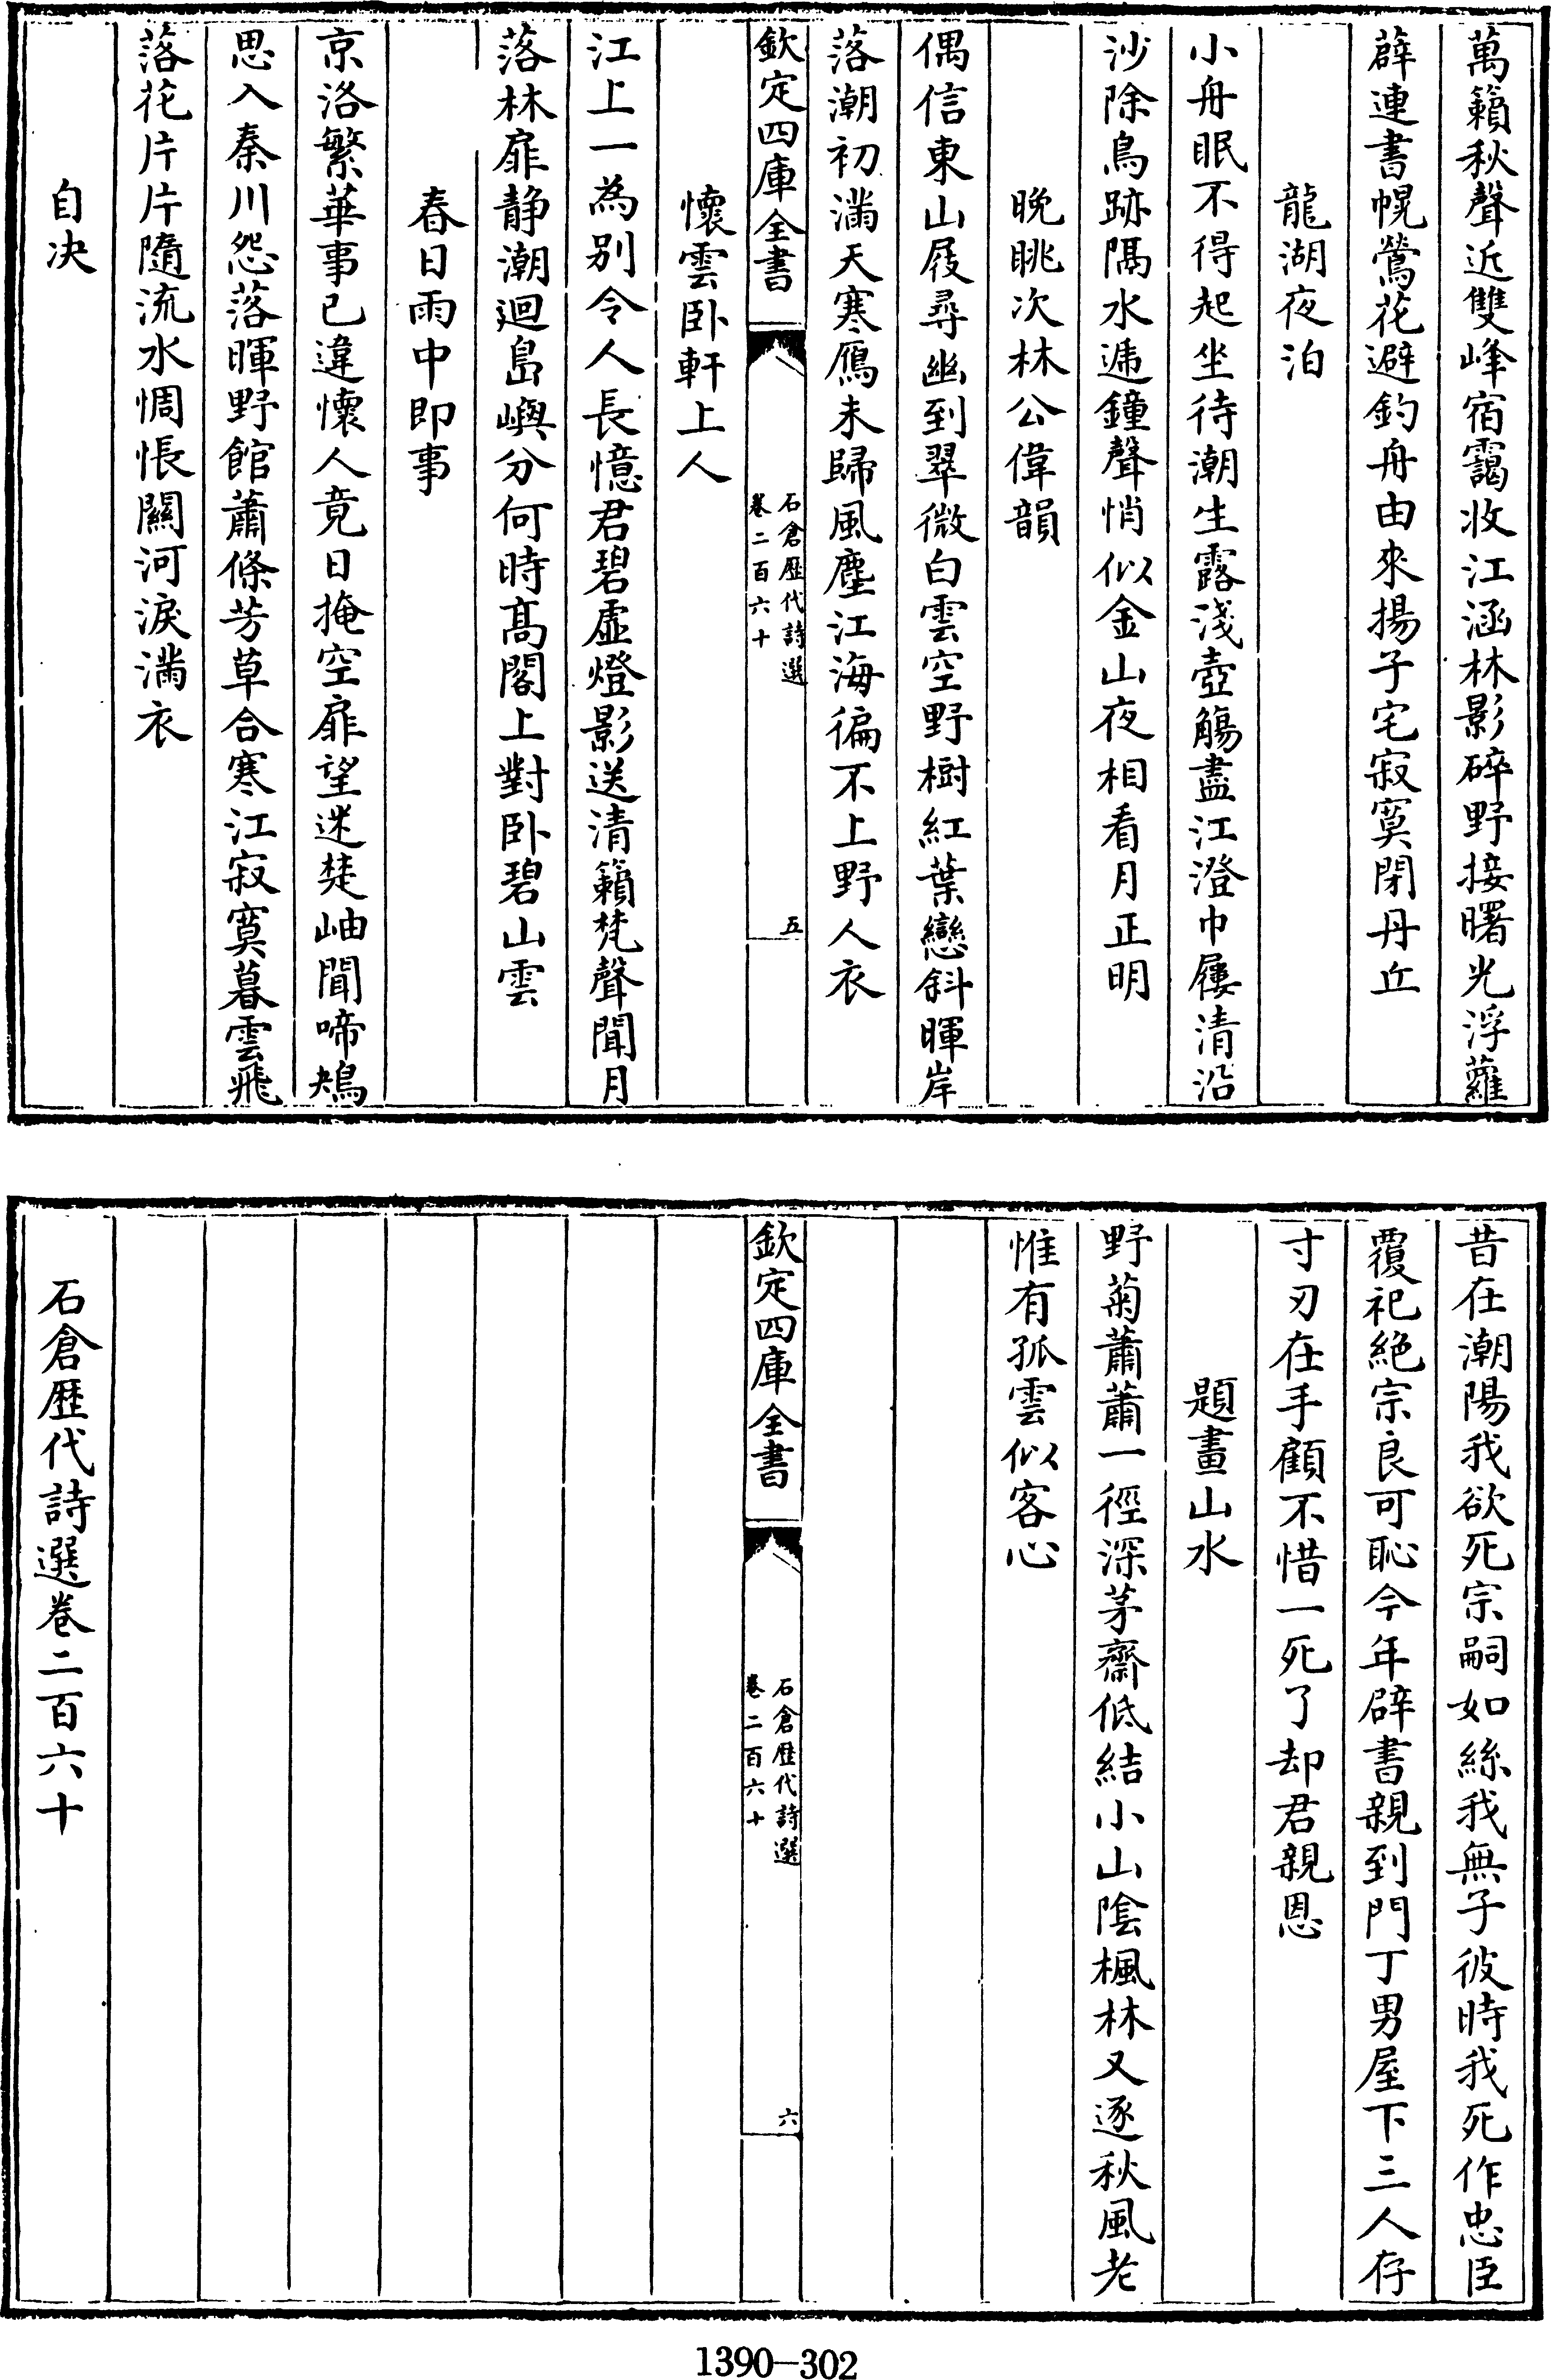 萬籟秋聲近雙峰宿靄收江涵林影碎野接曙光浮蘿
薜連書幌鶯花避釣舟由來揚子宅寂寞閉丹丘
龍湖夜泊
小舟眠不得起坐待潮生露淺壺觴盡江澄巾屨清沿
沙除鳥跡隔水逓鐘聲悄似金山夜相看月正明
晚眺次林公偉韻
偶信東山屐尋幽到翠微白雲空野樹紅葉戀斜暉岸
落潮初滿天寒鴈未歸風塵江海徧不上野人衣
欽定四庫全書
石倉歴代詩選
卷二百六十
五
懷雲卧軒上人
江上一為别令人長憶君碧虛燈影送清籟梵聲聞月
落林扉静潮迴島嶼分何時髙閣上對卧碧山雲
春日雨中即事
京洛繁華事已違懷人竟日掩空扉望迷楚岫聞啼鴂
思入秦川怨落暉野館蕭條芳草合寒江寂寞暮雲飛
落花片片隨流水惆悵關河淚滿衣
自决
昔在潮陽我欲死宗嗣如絲我無子彼時我死作忠臣
覆祀絶宗良可恥今年辟書親到門丁男屋下三人存
寸刃在手顧不惜一死了却君親恩
題畫山水
野菊蕭蕭一徑深茅齋低結小山陰楓林又逐秋風老
惟有孤雲似客心
欽定四庫全書
石倉歴代詩選
卷二百六十
六
石倉歴代詩選卷二百六十
1390—302